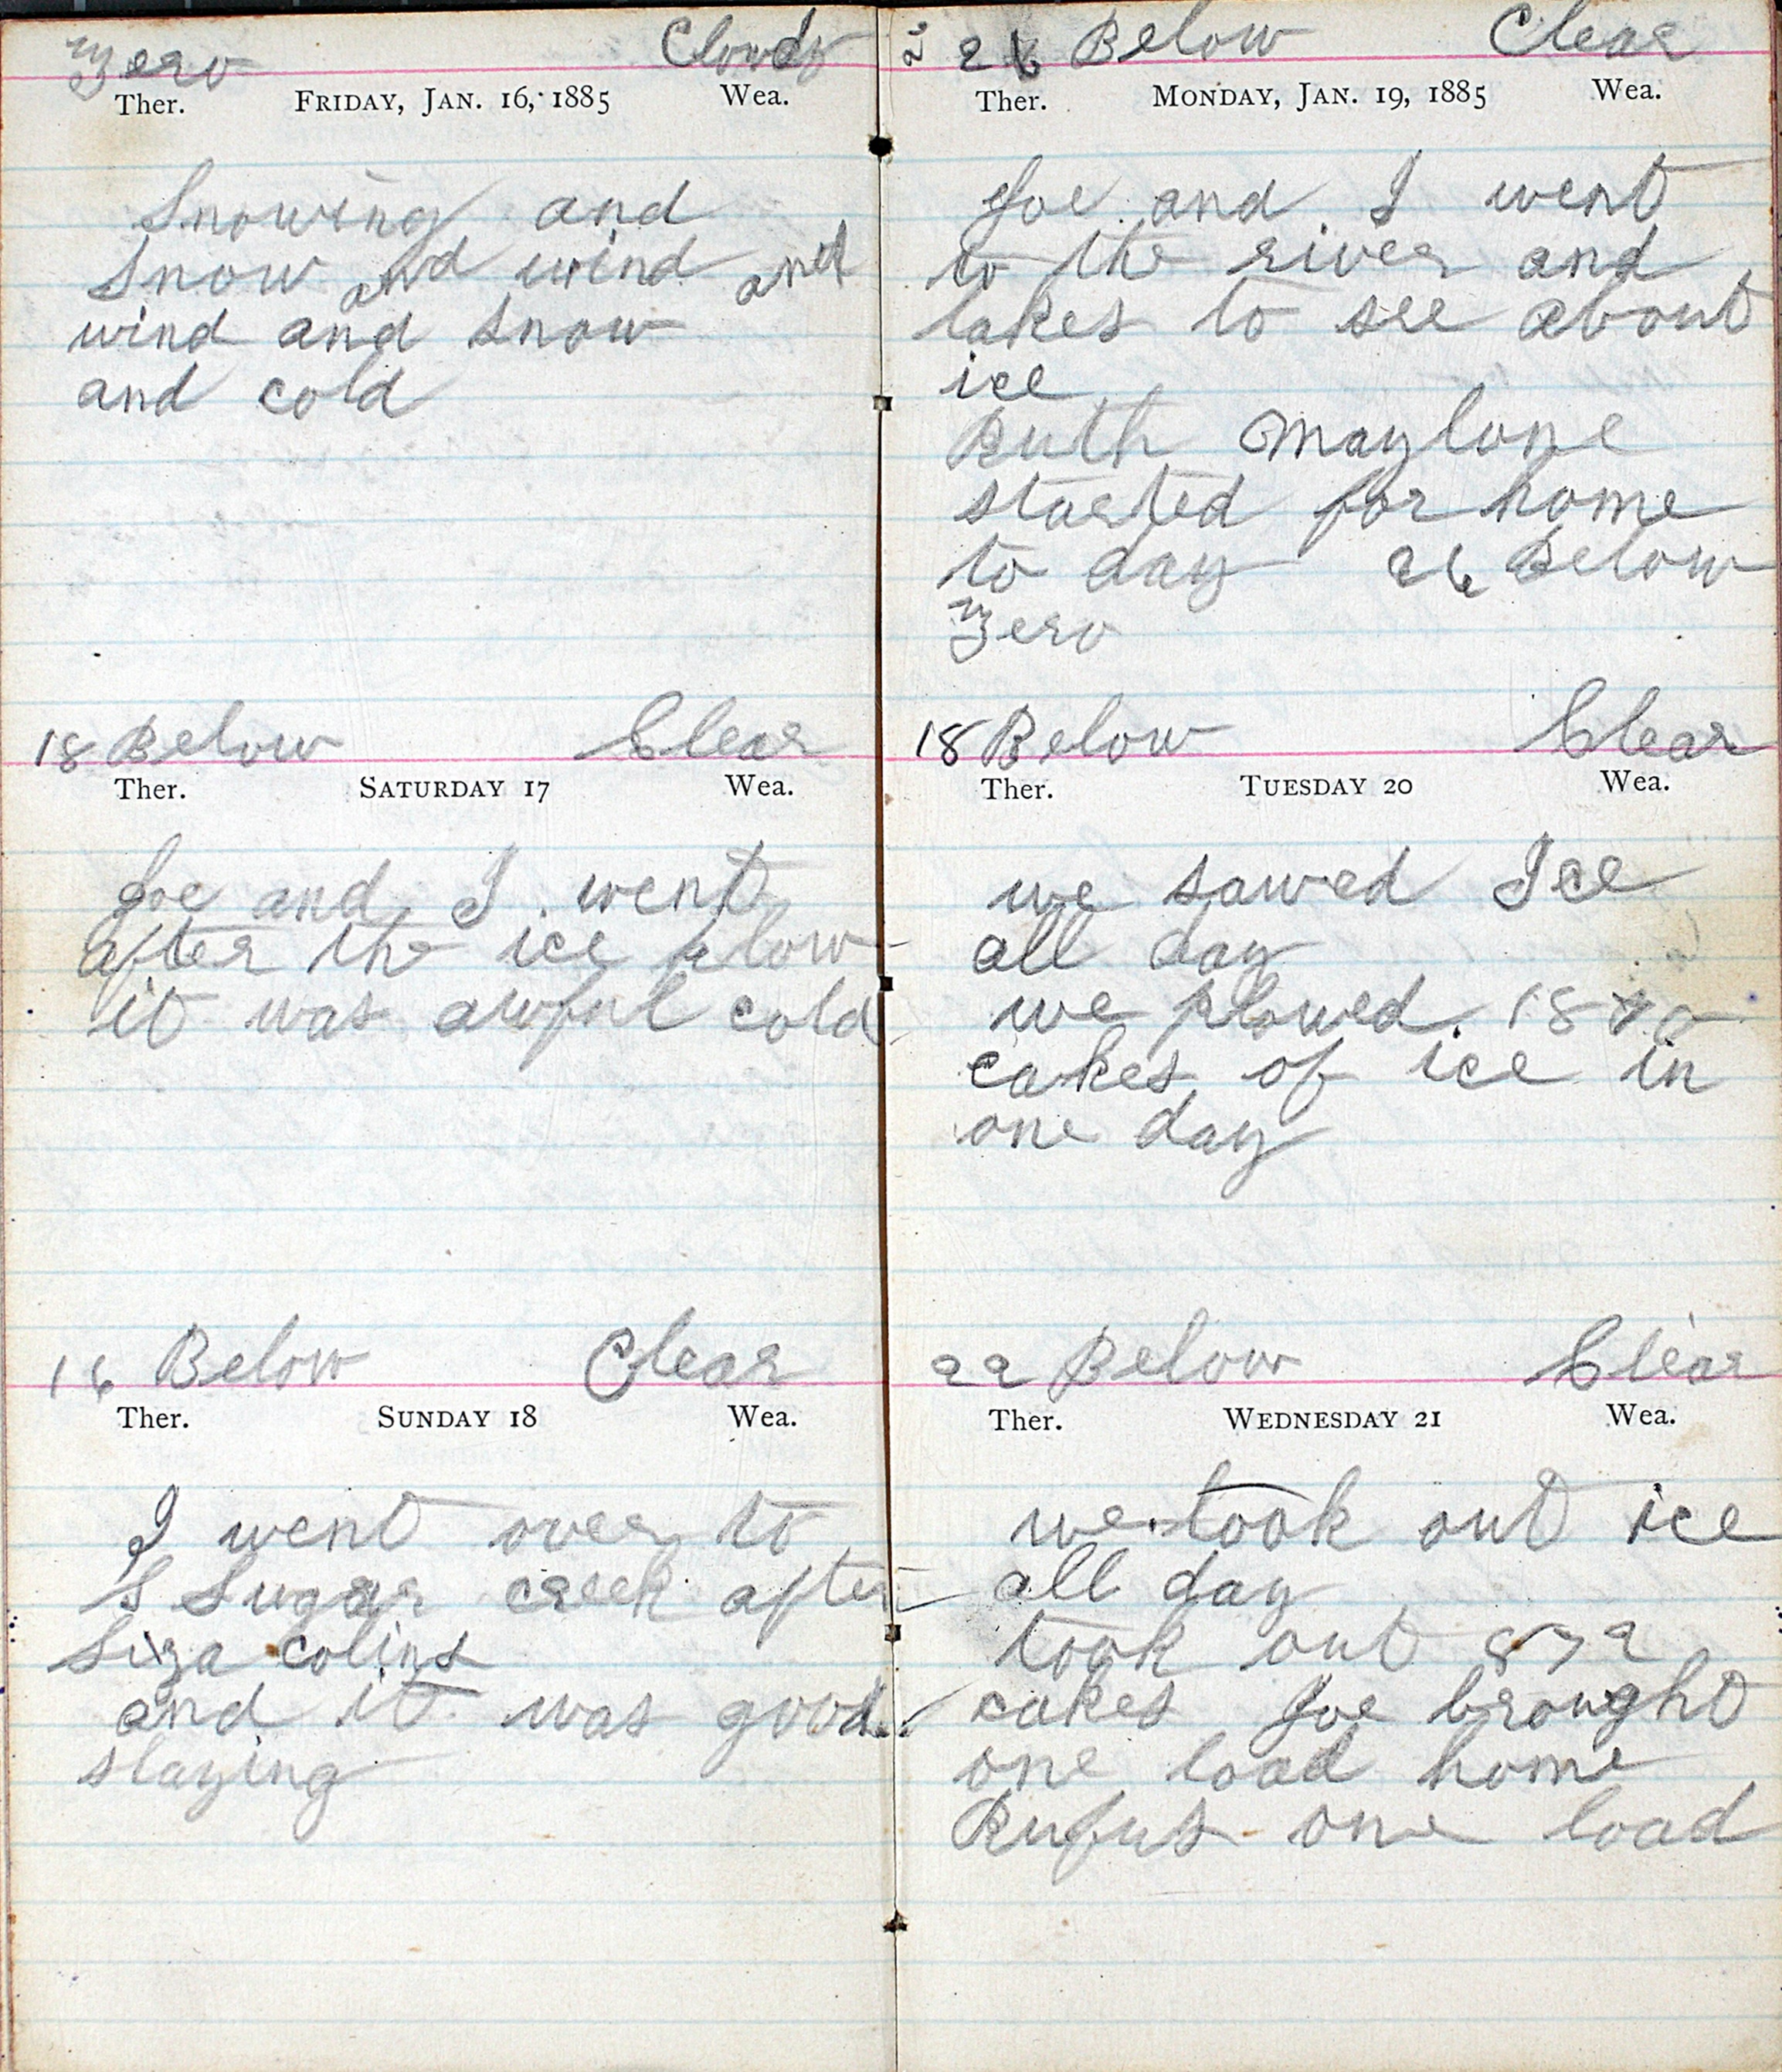 Zero Cloudy
Ther. FRIDAY, JAN. 16, 1885 Wea.
Snowing and
Snow and wind and
wind and snow
and cold
18 Below Clear
Ther. SATURDAY 17 Wea.
Joe and I went
after the ice plow
it was awful cold
16 Below Clear
Ther. SUNDAY 18 Wea.
I went over to
S Sugar creek after
Liza Colins
and it was good
slaying
26 Below Clear
Ther. MONDAY, JAN. 19, 1885 Wea.
Joe and I went
to the river and
lakes to see about
ice
Ruth Maylone
started for home
to day 26 Below
Zero
18 Below Clear
Ther. TUESDAY 20 Wea.
we sawed Ice
all day
we plowed
cakes of ice in
one day
22 Below Clear
Ther. WEDNESDAY 21 Wea.
we took out ice
all day
took out 872
cakes Joe brought
one load home
Rufus one load